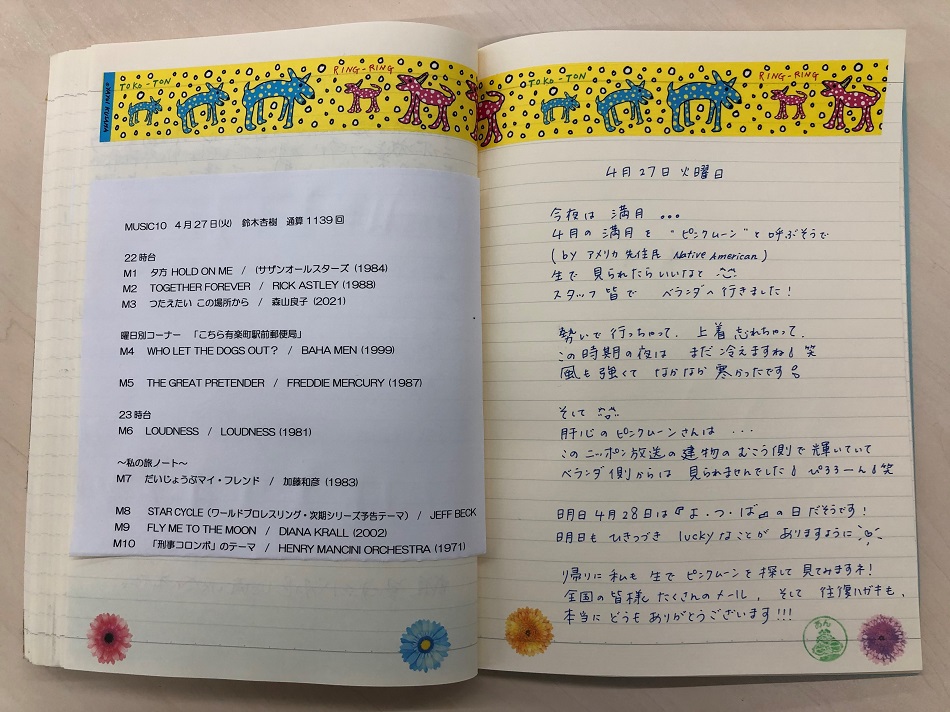 TOKO-TON
RING-RING
MUSIC10 4月27日(火) 鈴木杏樹 通算1139回
22時台
M1 夕方 HOLD ON ME / (サザンオールスターズ (1984)
M2 TOGETHER FOREVER / RICK ASTLEY (1988)
M3 つたえたい この場所から / 森山良子 (2021)
曜日別コーナー 「こちら有楽町駅前郵便局」
M4 WHO LET THE DOGS OUT? / BAHA MEN (1999)
M5 THE GREAT PRETENDER / FREDDIE MERCURY (1987)
23時台
M6 LOUDNESS / LOUDNESS (1981)
～私の旅ノート～
M7 だいじょうぶマイ・フレンド / 加藤和彦 (1983)
M8 STAR CYCLE (ワールドプロレスリング・次期シリーズ予告テーマ) / JEFF BECK
M9 FLY ME TO THE MOON / DIANA KRALL (2002)
M10 「刑事コロンボ」のテーマ / HENRY MANCINI ORCHESTRA (1971)
TOKO-TON
RING-RING
4月27日 火曜日
今夜は 満月 。。。
4月の 満月 を "ピンクムーン" と 呼ぶそうで
(by アメリカ 先住民 Native American)
生で 見られたらいいなと
スタッフ 皆で ベランダへ 行きました!
勢いで 行っちゃって、上着 忘れちゃって、
この時期の夜は まだ 冷えますね 笑
風も 強くて なかなか 寒かったです
そして
肝心の ピンクムーンさんは ・・・
この ニッポン放送の 建物の むこう側で 輝いていて
ベランダ側からは 見られませんでした ぴろろーん 笑
明日 4月28日は 『よ・つ・ば』の 日だそうです!
明日も ひきつづき luckyなことが ありますように
帰りに 私も 生で ピンクムーンを 探して 見てみますネ!
全国の 皆様 たくさんの メール、そして 往復ハガキも、
本当に どうも ありがとうございます!!!
あん